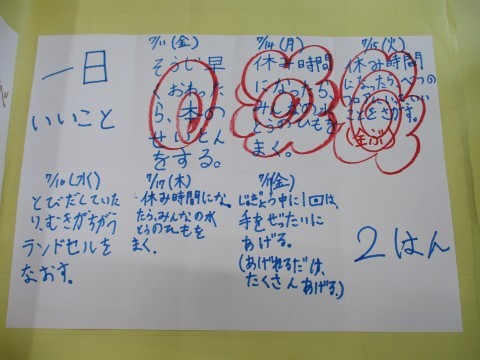 一日
いいこと
7/11(金)
そうじ早
くおわった
ら、本の
せいとん
をする。
7/14(月)
休み時間
になったら、
みんなの水
とうのひもを
まく。
7/15(火)
休み時間
になったら、べつの
フロアにいいこと
をさがす。
全ぶ
7/16(水)
とびだしていた
り、むきがちがう
ランドセルを
なおす。
7/17(木)
休み時間にな
たら、みんなの水
とうのひもを
まく。
7/18(金)
じゅぎょう中に1回は、
手をぜったいに
あげる。
(あげれるだけ、
たくさんあげる。)
2はん